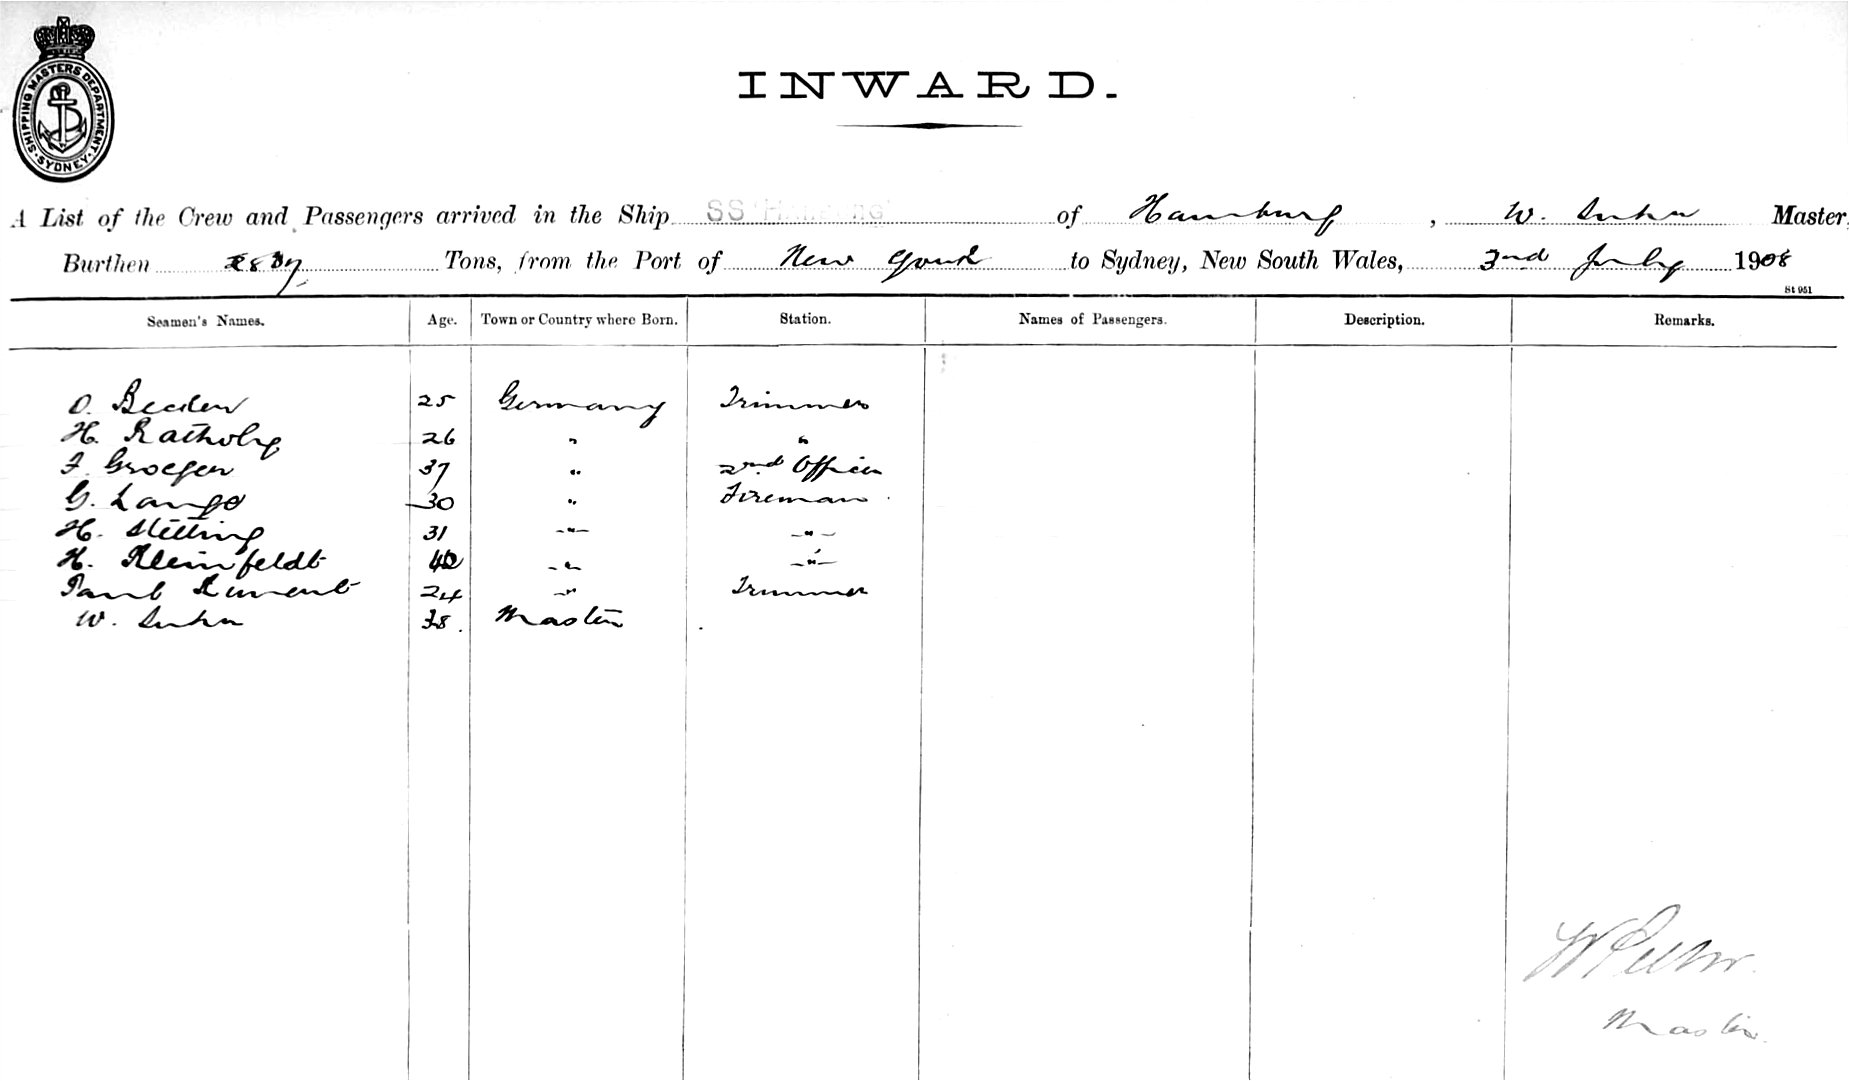 SHIPPING MASTERS DEPARTMENT · SYDNEY ·
INWARD.
A List of the Crew and Passengers arrived in the Ship SS of Hamburg, W. Master,
Burthen Tons, from the Port of New York to Sydney, New South Wales, 2nd July 1908
St 951
Seamen's Names. Age. Town or Country where Born. Station. Names of Passengers. Description. Remarks.
O. 25 Germany Trimmer
H. 26 " "
F. Groeger 37 " 2nd Officer
G. Lange 30 " Fireman
H. 31 -"- -"-
H. Kleinfeldt -"- -"-
Paul 24 -"- Trimmer
W. 38. Master
Master